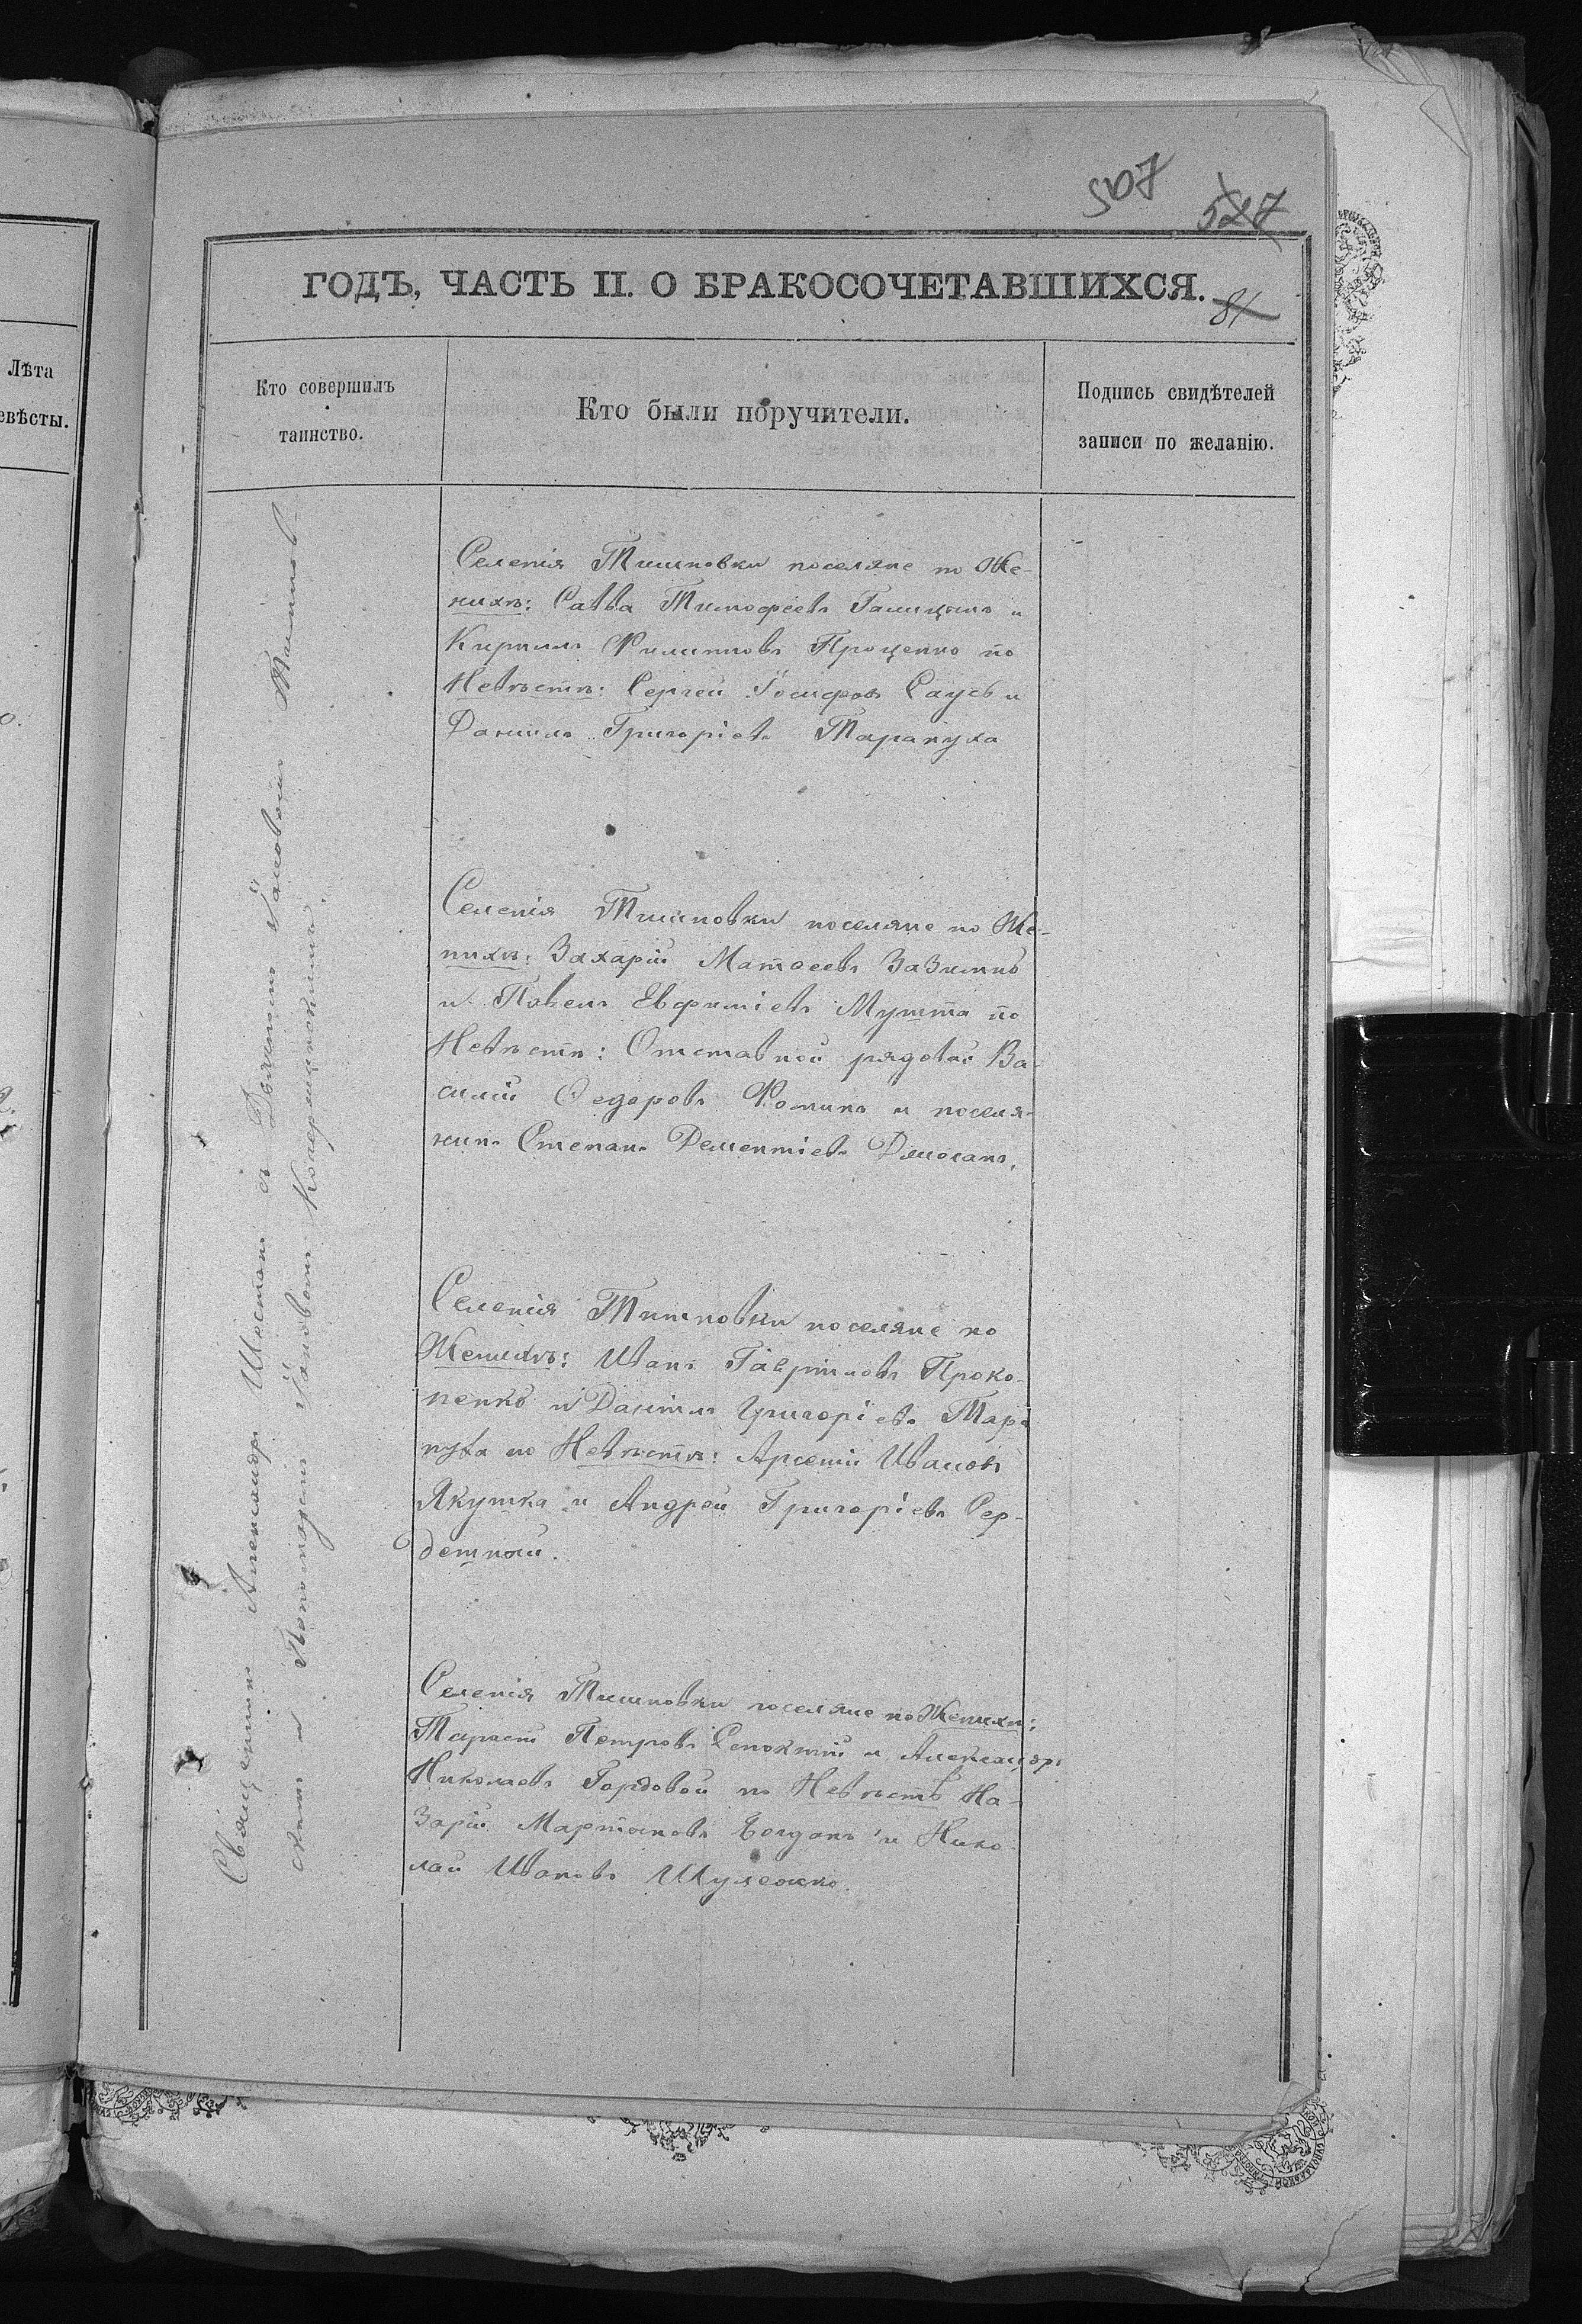 507
527
ГОДЪ, ЧАСТЬ II. О БРАКОСОЧЕТАВШИХСЯ.
81
Лѣта
евѣсты.
Кто совершилъ
таинство.
Кто были поручители.
Подпись свидѣтелей
записи по желанію.
Священникъ Александръ Шестопъ съ Іаковомъ
и Пономаремъ Іаковомъ
Селенія Тишковки поселяне по Же-
нихѣ: Савва Тимофеевъ Галицынъ и
Кириллъ Филипповъ Проценко по
Невѣстѣ: Сергей Іосифовъ Саусь и
Даніилъ Григоріевъ Тарануха
Селенія Тишковки поселяне по Же-
нихѣ: Захарій Матѳеевъ Зазимко
и Павелъ Евфиміевъ Мушта по
Невѣстѣ: Отставной рядовой Ва-
силій Ѳедоровъ Фоминъ и поселя-
нинъ Степанъ Дементіевъ
Селенія Тишковки поселяне по
Женихѣ: Иванъ Гавріиловъ Проко-
пенко и Даніилъ Григоріевъ Тара
нуха по Невѣстѣ: Арсеній Ивановъ
Якушка и Андрей Григоріевъ Сер-
дешный.
Селенія Тишковки поселяне по Женихѣ:
Тарасій Петровъ и Александръ
Николаевъ Гордовой по Невѣстѣ На-
зарій Мартиновъ Богданъ и Нико
лай Ивановъ Шулежко.